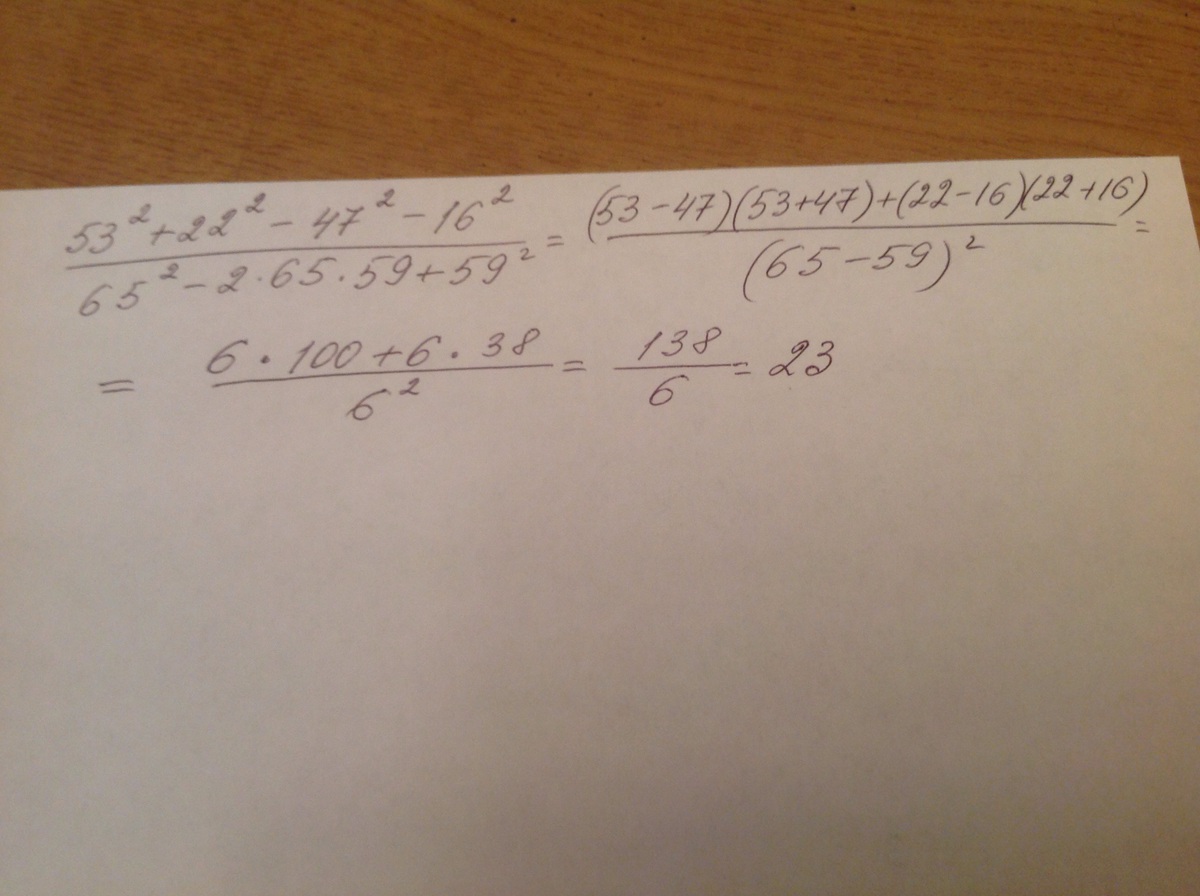 53² + 22² − 47² − 16² / 65² − 2·65·59 + 59² = (53−47)(53+47)+(22−16)(22+16) / (65−59)² =
= 6·100+6·38 / 6² = 138 / 6 = 23